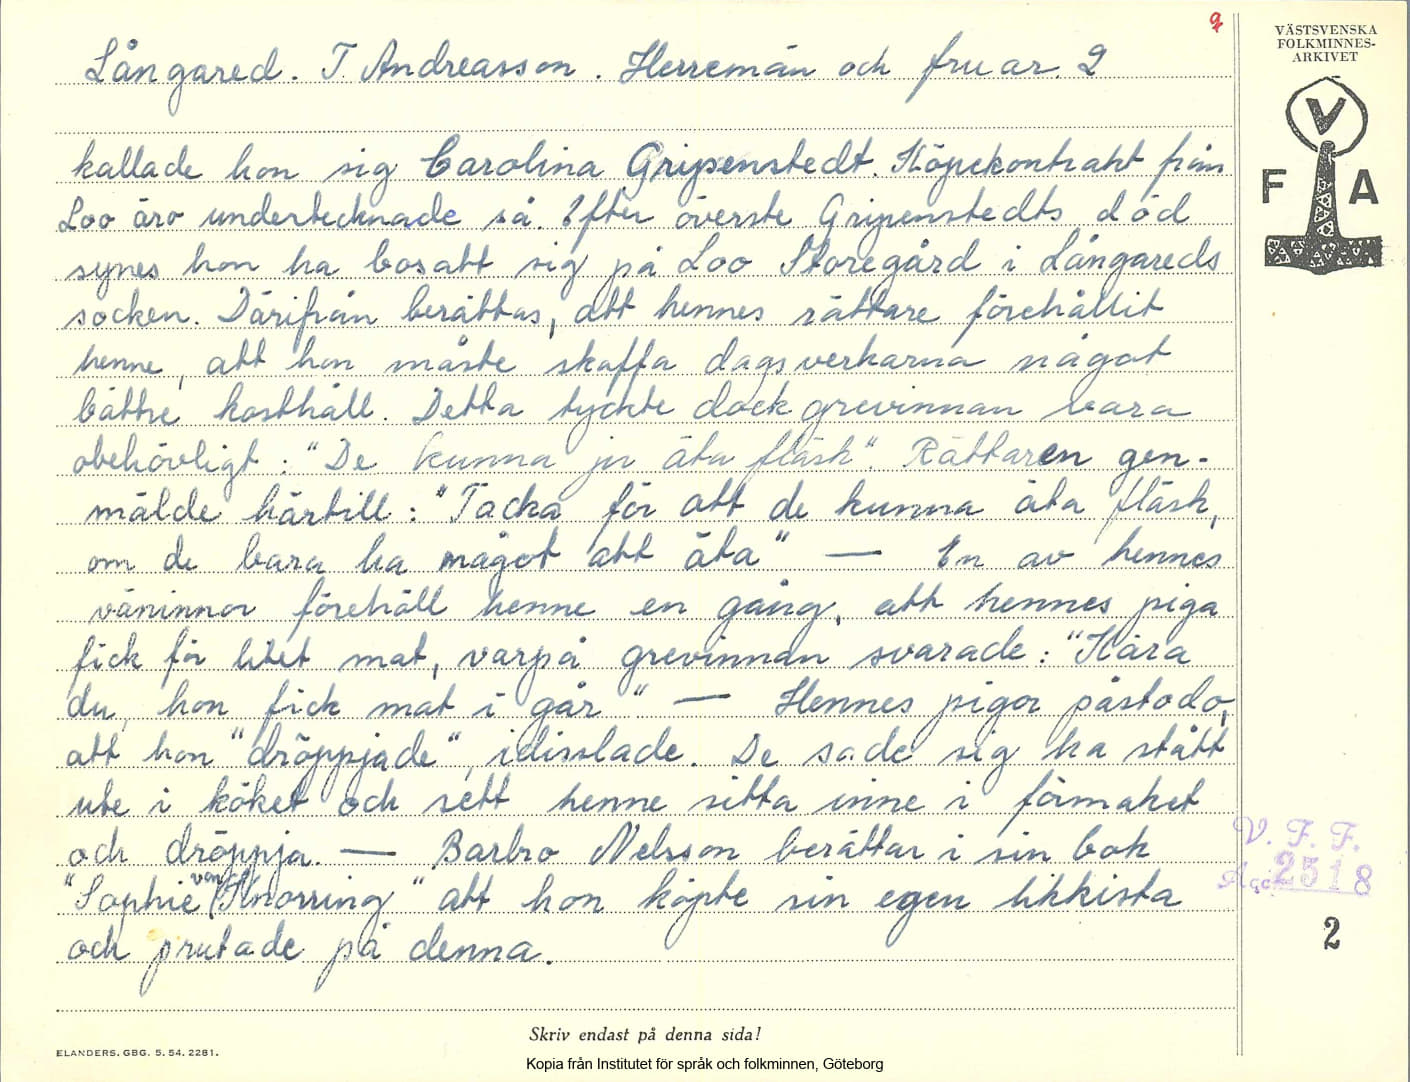 9
VÄSTSVENSKA
FOLKMINNES-
ARKIVET
V
F A
Långared. T. Andreasson. Herremän och fruar. 2
kallade hon sig Carolina Gripenstedt. Köpekontrakt från
Loo äro undertecknade så. Efter överste Gripenstedts död
synes hon ha bosatt sig på Loo Storegård i Långareds
socken. Därifrån berättas, att hennes rättare förehållit
henne, att hon måste skaffa dagsverkarna något
bättre kosthåll. Detta tyckte dock grevinnan vara
obehövligt: "De kunna ju äta fläsk". Rättaren gen-
mälde härtill: "Tacka för att de kunna äta fläsk,
om de bara ha något att äta" — En av hennes
väninnor förehöll henne en gång, att hennes piga
fick för litet mat, varpå grevinnan svarade: "Kära
du, hon fick mat i går". — Hennes pigor påstodo,
att hon "dröppjade", idisslade. De sade sig ha stått
ute i köket och sett henne sitta inne i förmaket
och dröppja. — Barbro Nelsson berättar i sin bok
"Sophie von Knorring" att hon köpte sin egen likkista
och prutade på denna.
V. F. F.
Acc. 2518
2
Skriv endast på denna sida!
ELANDERS. GBG. 5. 54. 2281.
Kopia från Institutet för språk och folkminnen, Göteborg